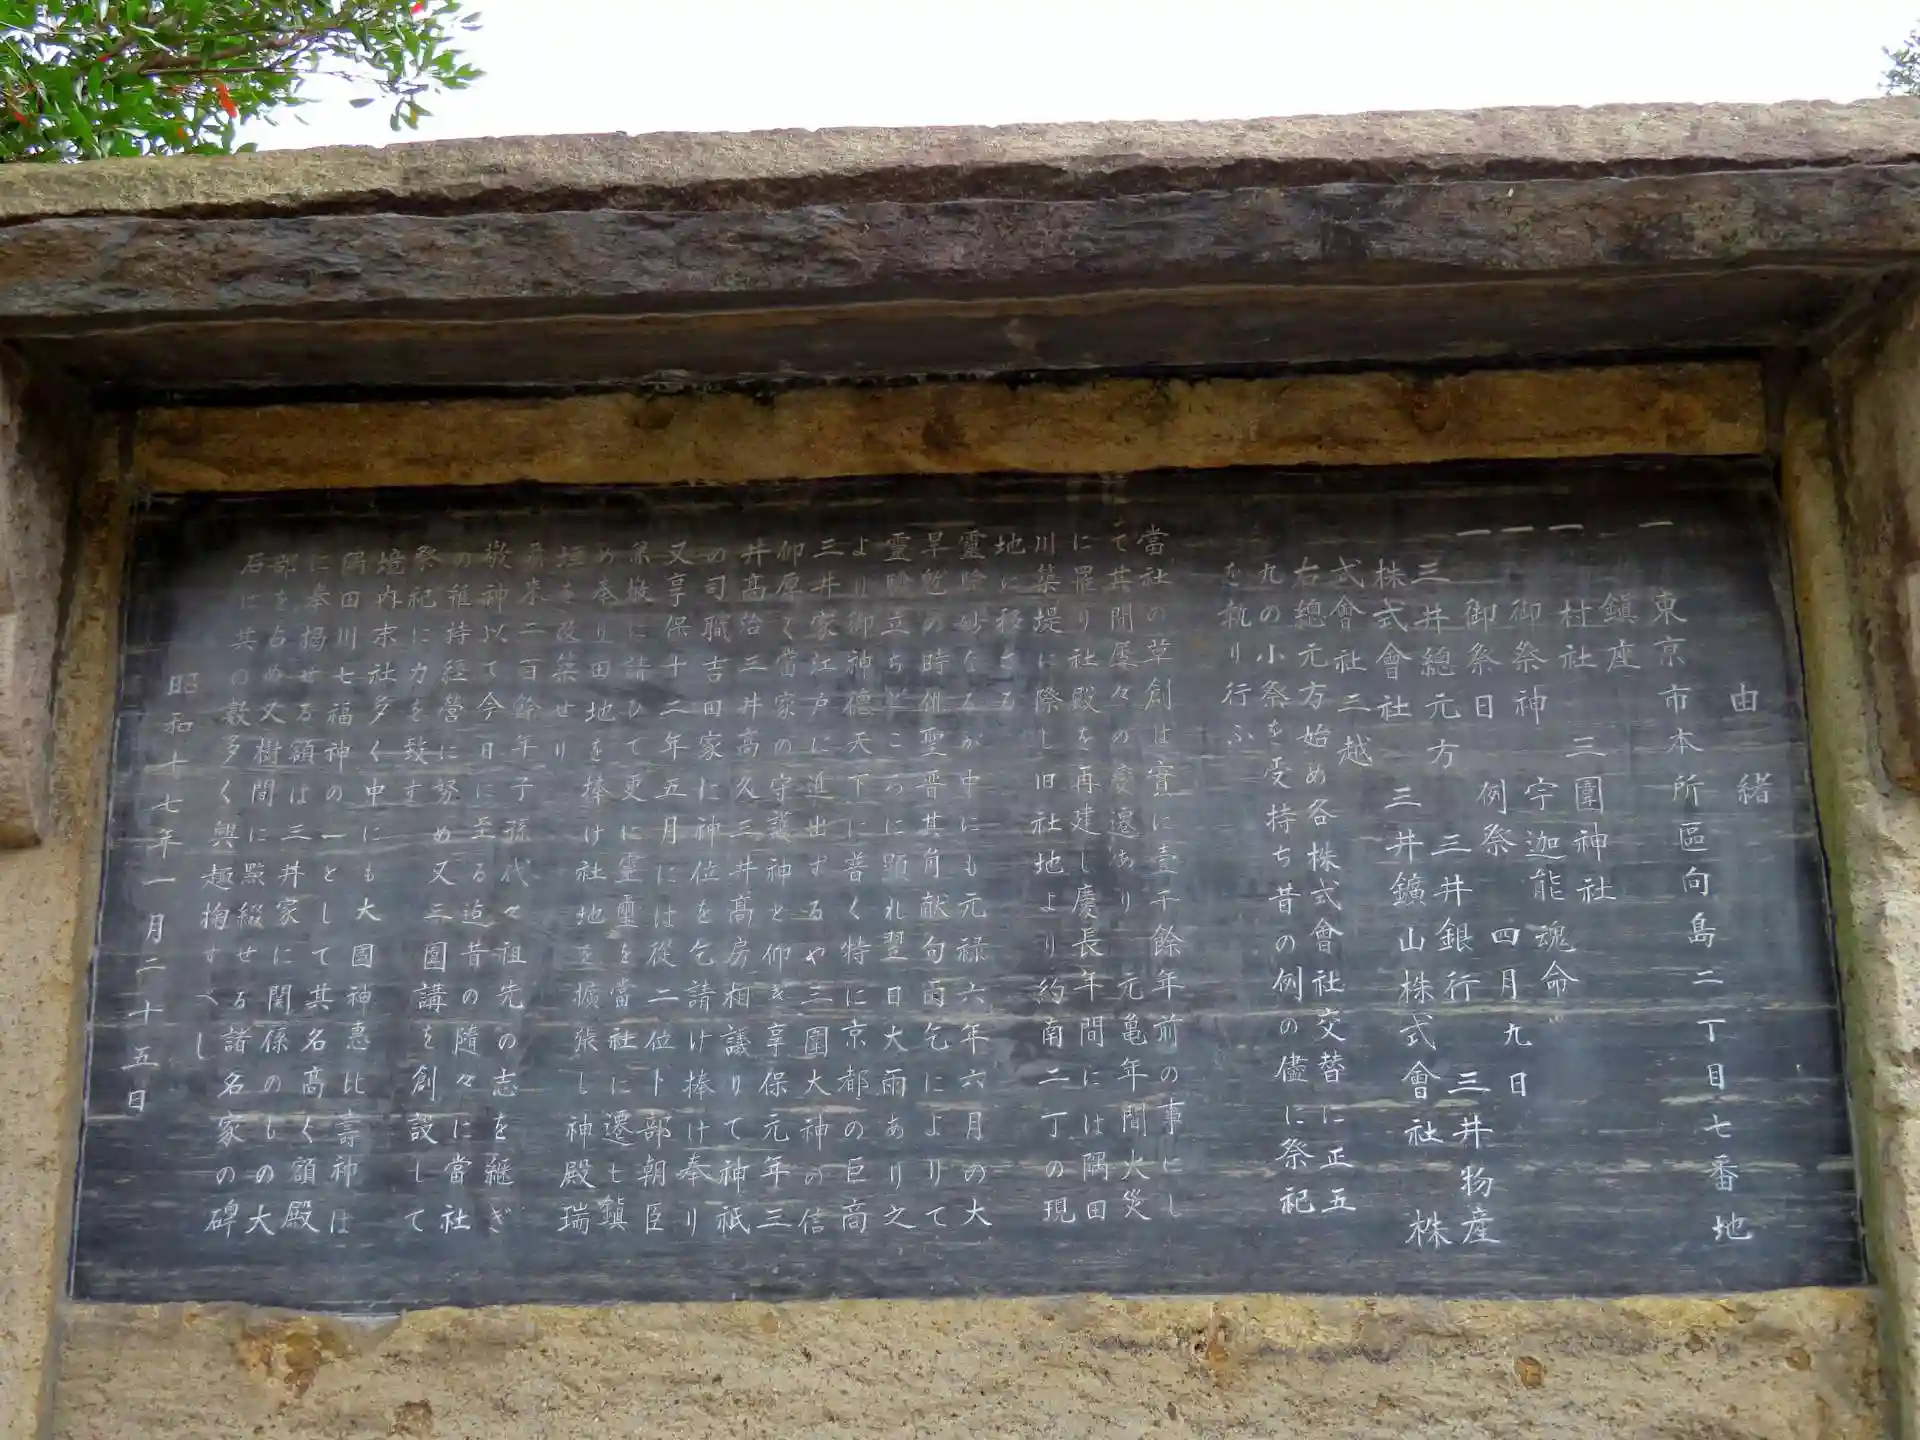 由緒
一 東京市本所區向島二丁目七番地
鎭座
一 村社 三圍神社
一 御祭神 宇迦能魂命
一 御祭日 例祭 四月九日
三井總元方 三井銀行 三井物産
株式會社 三井鑛山株式會社 株
式會社三越
右總元方始め各株式會社交替に正五
九の小祭を受持ち昔の例の儘に祭祀
を執り行ふ
當社の草創は實に壹千餘年前の事にし
て其間屢々の變遷あり 元亀年間火災
に罹り社殿を再建し慶長年間には隅田
川築堤に際し旧社地より約南二丁の現
地に移さる
靈驗妙なるが中にも元禄六年六月の大
旱魃の時俳聖晋其角献句雨乞によりて
靈驗立ちどころに顕れ翌日大雨あり之
より御神德天下に普く特に京都の巨商
三井家江戸に進出するや三圍大神の信
仰厚く當家の守護神と仰ぎ享保元年三
井髙治三井髙久三井髙房相議りて神祇
の司職吉田家に神位を乞請け捧け奉り
又享保十二年五月には從二位卜部朝臣
兼敬に請ひて更に靈璽を當社に遷し鎭
め奉り田地を捧け社地を擴張し神殿瑞
垣を改築せり
爾来二百餘年子孫代々祖先の志を継ぎ
敬神以て今日に至る迠昔の隨々に當社
の維持經營に努め又三圍講を創設して
祭祀に力を致す
境内末社多く中にも大國神惠比壽神は
隅田川七福神の一として其名髙く額殿
に奉揭せる額は三井家に関係のもの大
部を占め又樹間に點綴せる諸名家の碑
石は共の数多く興趣掬すべし
昭和十七年一月二十五日